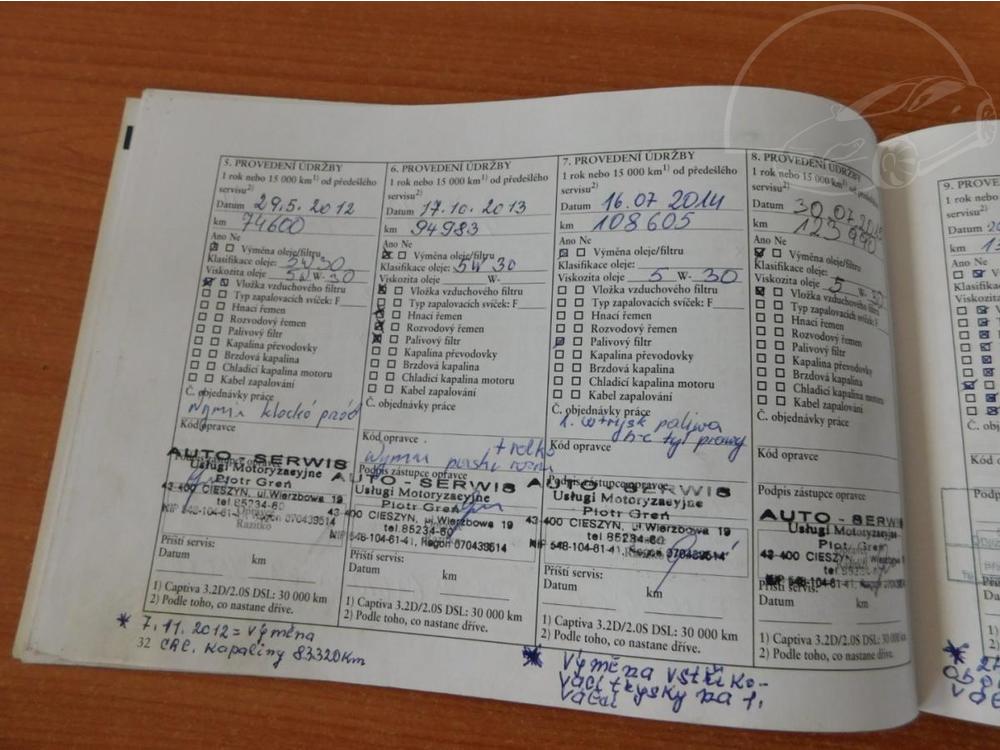 5. PROVEDENÍ ÚDRŽBY
1 rok nebo 15 000 km1) od předešlého
servisu2)
Datum 29.5.2012
km 74600
Ano Ne
Výměna oleje/filtru
Klasifikace oleje: 5W30
Viskozita oleje 5W-30
Vložka vzduchového filtru
Typ zapalovacích svíček: F
Hnací řemen
Rozvodový řemen
Palivový filtr
Kapalina převodovky
Brzdová kapalina
Chladicí kapalina motoru
Kabel zapalování
Č. objednávky práce
Kód opravce
AUTO - SERWIS
Usługi Motoryzacyjne
Piotr Greń
43-400 CIESZYN, ul.Wierzbowa 19
tel 85234-60
NIP 548-104-61-41, Regon 070439514
Razítko
Příští servis:
Datum km
1) Captiva 3.2D/2.0S DSL: 30 000 km
2) Podle toho, co nastane dříve.
* 7.11.2012 = Výměna
32 chl. kapaliny 83320km
6. PROVEDENÍ ÚDRŽBY
1 rok nebo 15 000 km1) od předešlého
servisu2)
Datum 17.10.2013
km 94983
Ano Ne
Výměna oleje/filtru
Klasifikace oleje: 5W30
Viskozita oleje W-
Vložka vzduchového filtru
Typ zapalovacích svíček: F
Hnací řemen
Rozvodový řemen
Palivový filtr
Kapalina převodovky
Brzdová kapalina
Chladicí kapalina motoru
Kabel zapalování
Č. objednávky práce
Kód opravce
Podpis zástupce opravce
AUTO - SERWIS
Usługi Motoryzacyjne
Piotr Greń
43-400 CIESZYN, ul.Wierzbowa 19
tel 85234-60
NIP 548-104-61-41, Regon 070439514
Příští servis:
Datum km
1) Captiva 3.2D/2.0S DSL: 30 000 km
2) Podle toho, co nastane dříve.
7. PROVEDENÍ ÚDRŽBY
1 rok nebo 15 000 km1) od předešlého
servisu2)
Datum 16.07 2014
km 108605
Ano Ne
Výměna oleje/filtru
Klasifikace oleje:
Viskozita oleje 5 W-30
Vložka vzduchového filtru
Typ zapalovacích svíček: F
Hnací řemen
Rozvodový řemen
Palivový filtr
Kapalina převodovky
Brzdová kapalina
Chladicí kapalina motoru
Kabel zapalování
Č. objednávky práce
Kód opravce
Podpis zástupce opravce
AUTO - SERWIS
Usługi Motoryzacyjne
Piotr Greń
43-400 CIESZYN, ul.Wierzbowa 19
tel 85234-60
NIP 548-104-61-41, Regon 070439514
Příští servis:
Datum km
1) Captiva 3.2D/2.0S DSL: 30 000 km
2) Podle toho, co nastane dříve.
* Výměna vstřiko-
vací trysky na 1.
válci
8. PROVEDENÍ ÚDRŽBY
1 rok nebo 15 000 km1) od předešlého
servisu2)
Datum 30.07.
km 123990
Ano Ne
Výměna oleje/filtru
Klasifikace oleje:
Viskozita oleje 5 W-30
Vložka vzduchového filtru
Typ zapalovacích svíček: F
Hnací řemen
Rozvodový řemen
Palivový filtr
Kapalina převodovky
Brzdová kapalina
Chladicí kapalina motoru
Kabel zapalování
Č. objednávky práce
Kód opravce
Podpis zástupce opravce
AUTO - SERWIS
Usługi Motoryzacyjne
Piotr Greń
43-400 CIESZYN, ul.Wierzbowa
tel 85234
NIP 548-104-61-41, Regon
Příští servis:
Datum km
1) Captiva 3.2D/2.0S DSL: 30 000 km
2) Podle toho, co nastane dříve.
9. PROVE
1 rok nebo
servisu2)
Datum
km
Ano Ne
Klasifik
Viskozit
Č. obj
Kód o
Podpi